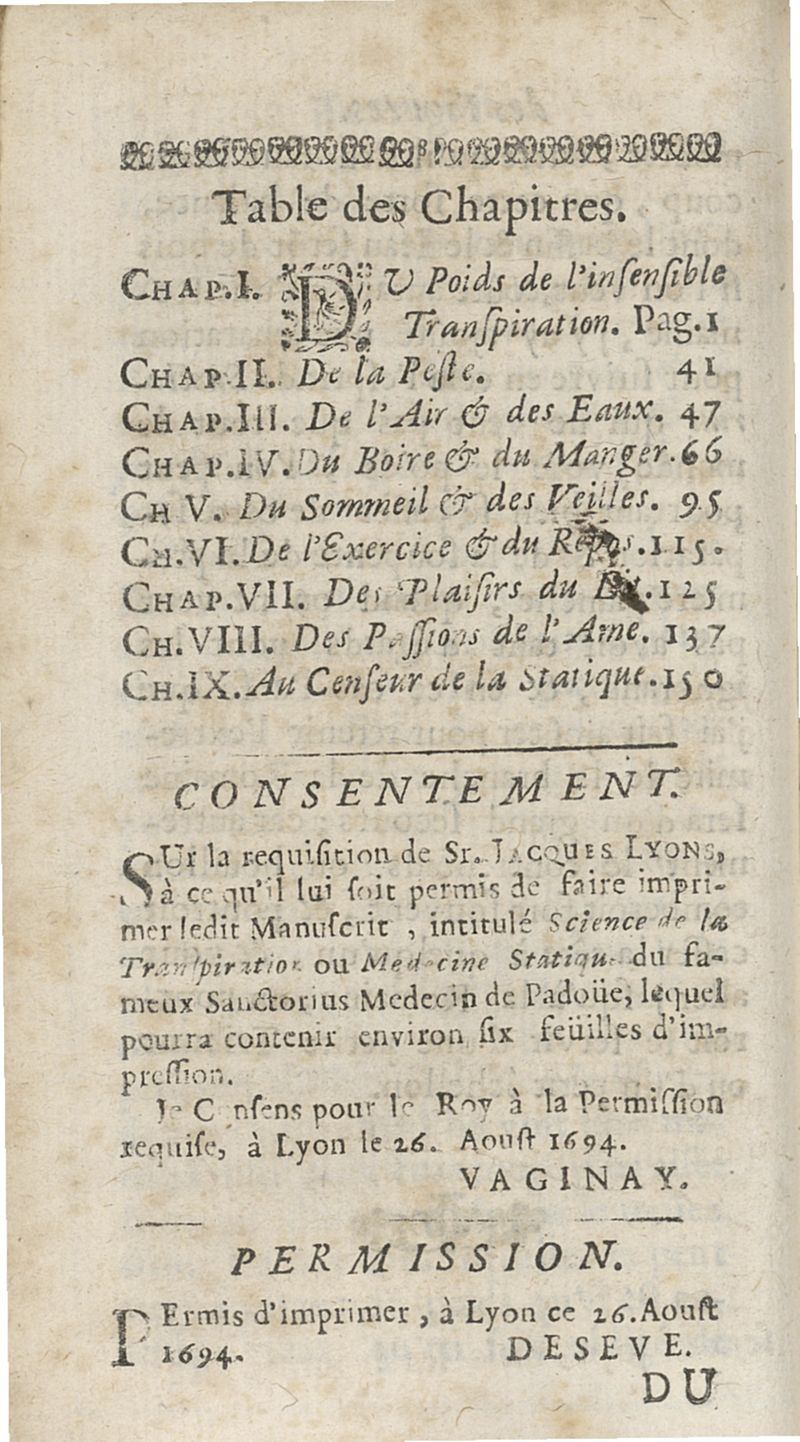 Table des Chapitres.
CHAP.I. DU Poids de l'insensible
Transpiration. Pag.1
CHAP.II. De la Peste. 41
CHAP.III. De l'Air & des Eaux. 47
CHAP.IV. Du Boire & du Manger. 66
CH V. Du Sommeil & des Veilles. 95
CH.VI. De l'Exercice & du Repos. 115.
CHAP.VII. Des Plaisirs du Lit. 125
CH.VIII. Des Passions de l'Ame. 137
CH.IX. Au Censeur de la Statique. 150
CONSENTEMENT.
SUr la requisition de Sr. JACQUES LYONS,
à ce qu'il lui soit permis de faire impri-
mer ledit Manuscrit , intitulé Science de la
Transpiration ou Medecine Statique du fa-
meux Sanctorius Medecin de Padoüe, lequel
pourra contenir environ six feüilles d'im-
pression.
Je Consens pour le Roy à la Permission
requise, à Lyon le 26. Aoust 1694.
VAGINAY.
PERMISSION.
PErmis d'imprimer , à Lyon ce 26. Aoust
1694. DESEVE.
DU